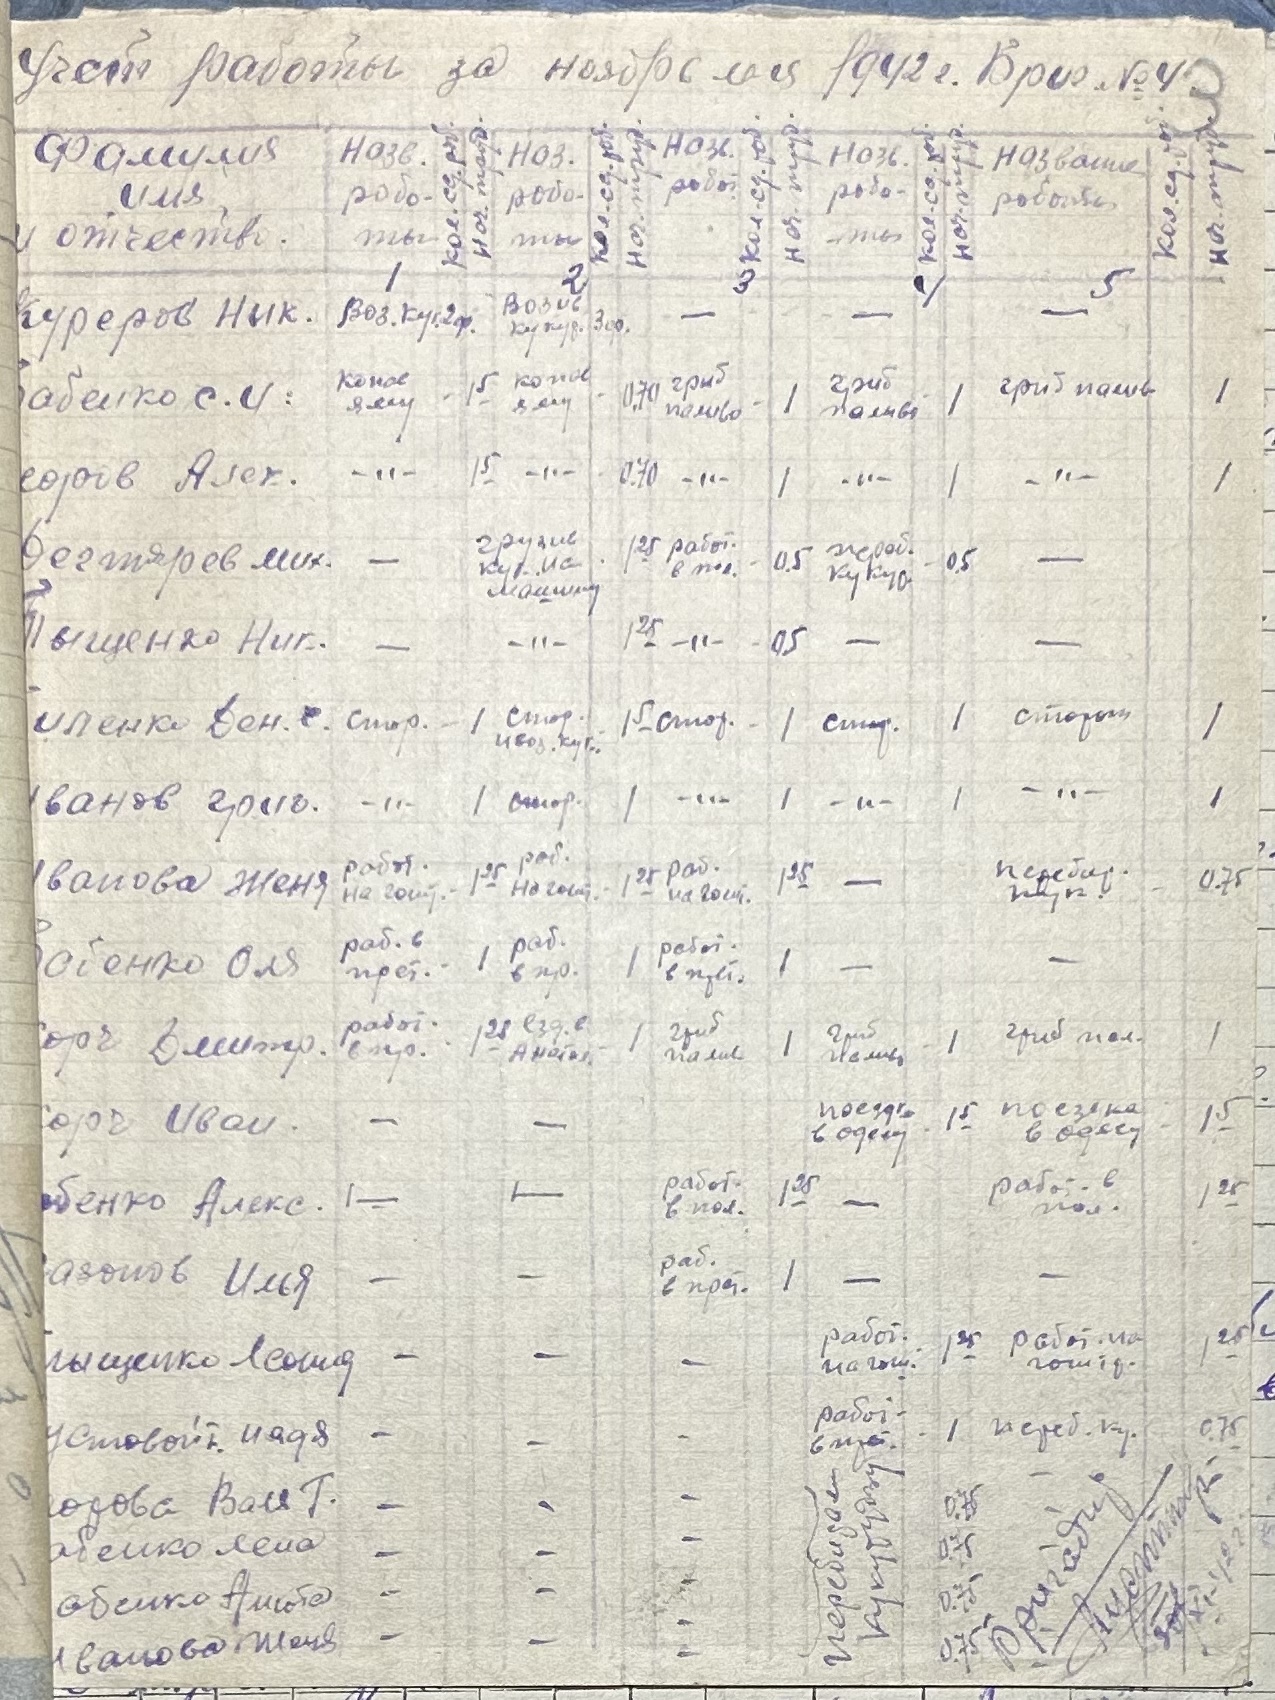 Учёт работы за ноябрь м-ця 1942 г. Бриг. №4
Фамилия имя и отчество. Назв. работы кол.ед.роб. нач.труд. Наз. работы кол.ед.роб. нач.труд. Назв. робот кол.ед.роб. нач.труд. Назв. работы кол.ед.роб. нач.труд. Название работы кол.ед.роб. нач.труд.
1 2 3 4 5
Куреров Ник. Воз.кук. 2ф. Возив кукур. 3ор. — — —
Бабенко С.И: копав яму - 1 5 копав яму - 0.70 гриб паливо - 1 гриб паливо - 1 гриб палив 1
Алек. -"- 1 5 -"- - 0.70 -"- 1 -"- 1 -"- 1
Дегтярев Мих. — грузив кук. на машину - 1 25 работ. в пол. - 0.5 переб. кукур. - 0.5 —
Пыщенко Ник. — -"- 1 25 -"- - 0.5 — —
Ден. С. стор. - 1 стор. и воз. кук. 1 5 стор. - 1 стор. 1 сторож 1
Иванов Григ. -"- 1 стор. 1 -"- 1 -"- 1 -"- 1
Иванова Женя работ. на гост. - 1 25 раб. на гост. - 1 25 раб. на гост. 1 25 — перебир. кук. - 0.75
Бабенко Оля раб. в прет. - 1 раб. в пр. 1 работ. в прет. 1 — —
Дмитр. работ. в пр. - 1 25 езд. в Анатол. - 1 гриб палив 1 гриб паливо - 1 гриб пал. 1
Иван. — — поездка в одесу - 1 5 поездка в одесу - 1 5
Бабенко Алекс. — — работ. в пол. 1 25 — работ. в пол. 1 25
Сазонов Илья — — раб. в прет. 1 — —
Пыщенко Леонид — — — работ. на гост. 1 25 работ. на гост. 1 25
Надя — — - работ. в прет. - 1 переб. ку. 0.75
Валя Г. — - — перебирали кукурудзу 0.75 -
Бабенко Лена — — — 0.75 -
Бабенко Анюта — — - 0.75
Иванова Женя — — - 0.75
Бригадир